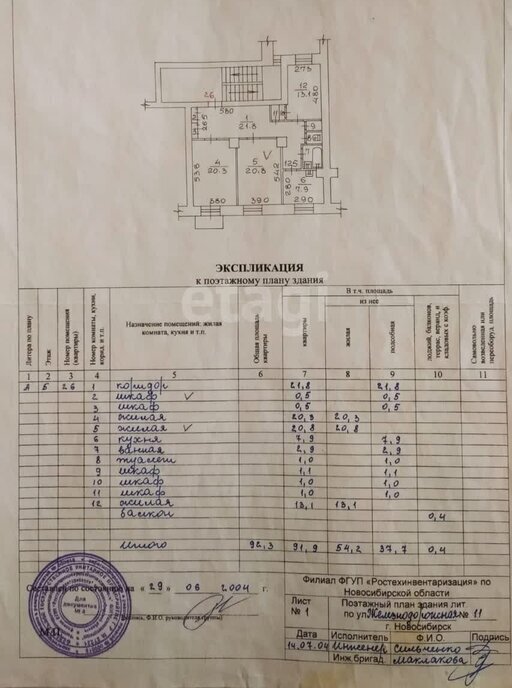 275
12
13.1
480
26
580
1
21.8
265
9
8
7
4
20.3
538
5
20.8
542
125
6
7.9
280
380
390
290
ЭКСПЛИКАЦИЯ
к поэтажному плану здания
etagi
Литера по плану
Этаж
Номер помещения (квартиры)
Номер комнаты, кухни, корид. и т.п.
Назначение помещений: жилая комната, кухня и т.п.
Общая площадь квартиры
В т.ч. площадь
из нее
квартиры
жилая
подсобная
лоджий, балконов, террас, веранд и кладовых с коэф.
Самовольно возведенная или переоборуд. площадь
1 2 3 4 5 6 7 8 9 10 11
А 5 26 1 коридор 21,8 21,8
2 шкаф 0,5 0,5
3 шкаф 0,5 0,5
4 жилая 20,3 20,3
5 жилая 20,8 20,8
6 кухня 7,9 7,9
7 ванная 2,9 2,9
8 туалет 1,0 1,0
9 шкаф 1,1 1,1
10 шкаф 1,0 1,0
11 шкаф 1,0 1,0
12 жилая 13,1 13,1
балкон 0,4
Итого 92,3 91,9 54,2 37,7 0,4
по состоянию на « 29 » 06 2004 г.
Ф.И.О. руководителя группы)
М.П.
Для документов
№ 4
Филиал ФГУП «Ростехинвентаризация» по
Новосибирской области
Лист
№ 1
Поэтажный план здания лит
по ул. Железнодорожная № 11
г. Новосибирск
Дата Исполнитель Ф.И.О. Подпись
14.07.04 Инженер Сильченко
Инж.бригад. Маклакова